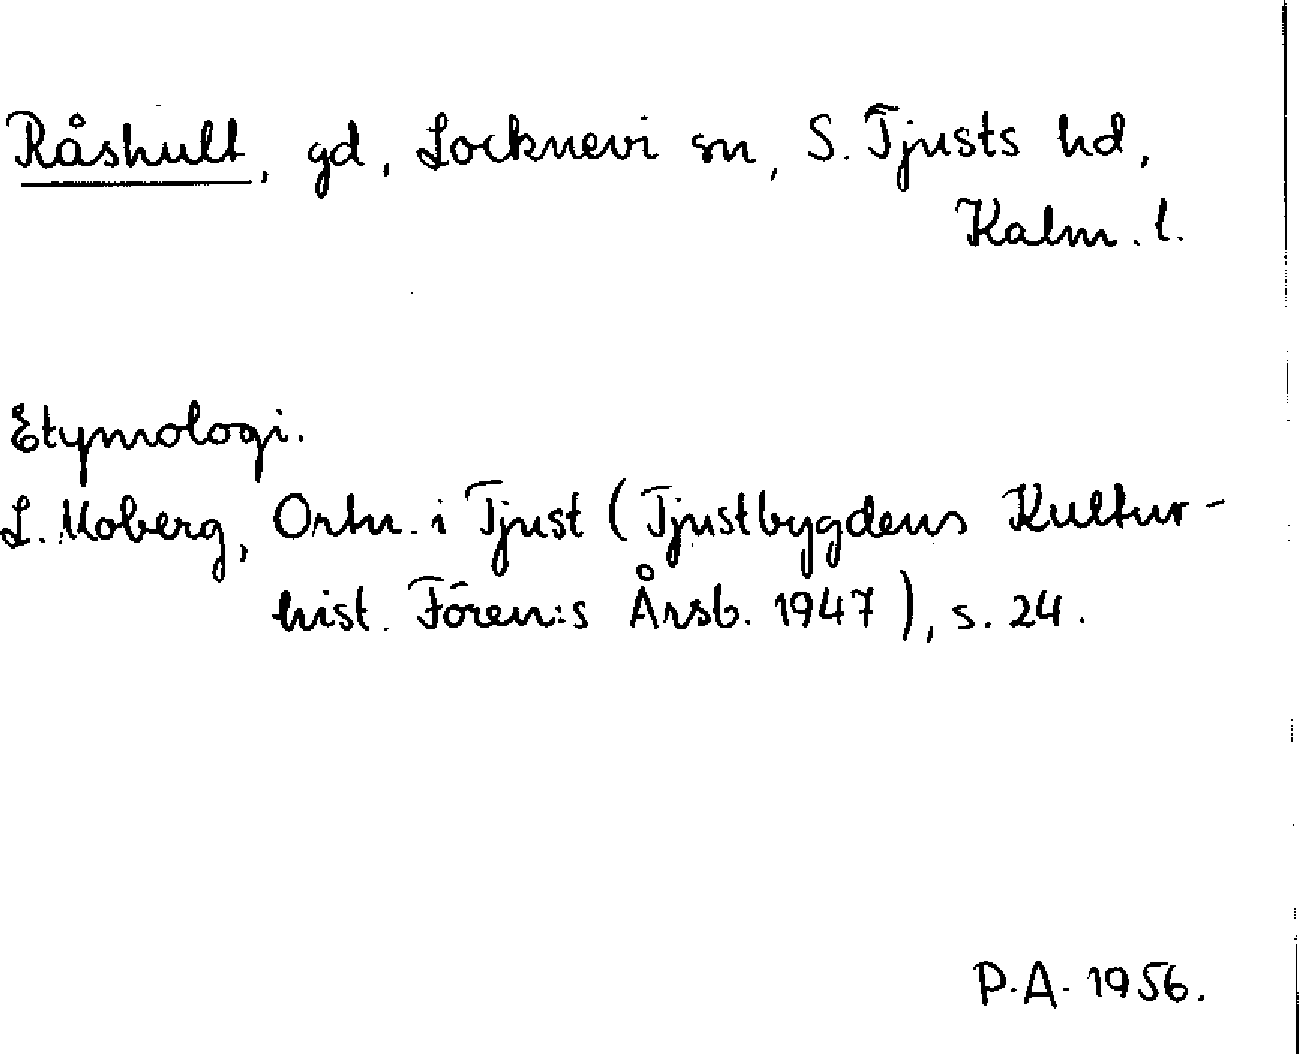 Råshult, gd, Locknevi sn, S. Tjusts hd,
Kalm. l.
Etymologi.
L. Moberg, Ortn. i Tjust (Tjustbygdens Kultur-
hist. Fören:s Årsb. 1947), s. 24.
P.A. 1956.